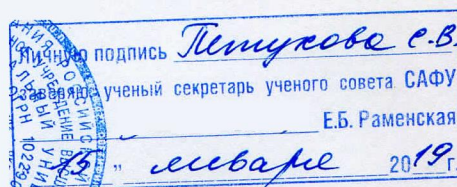 Личную подпись Петухова С.В.
заверяю ученый секретарь ученого совета САФУ
Е.Б. Раменская
" 15 " января 2019 г.